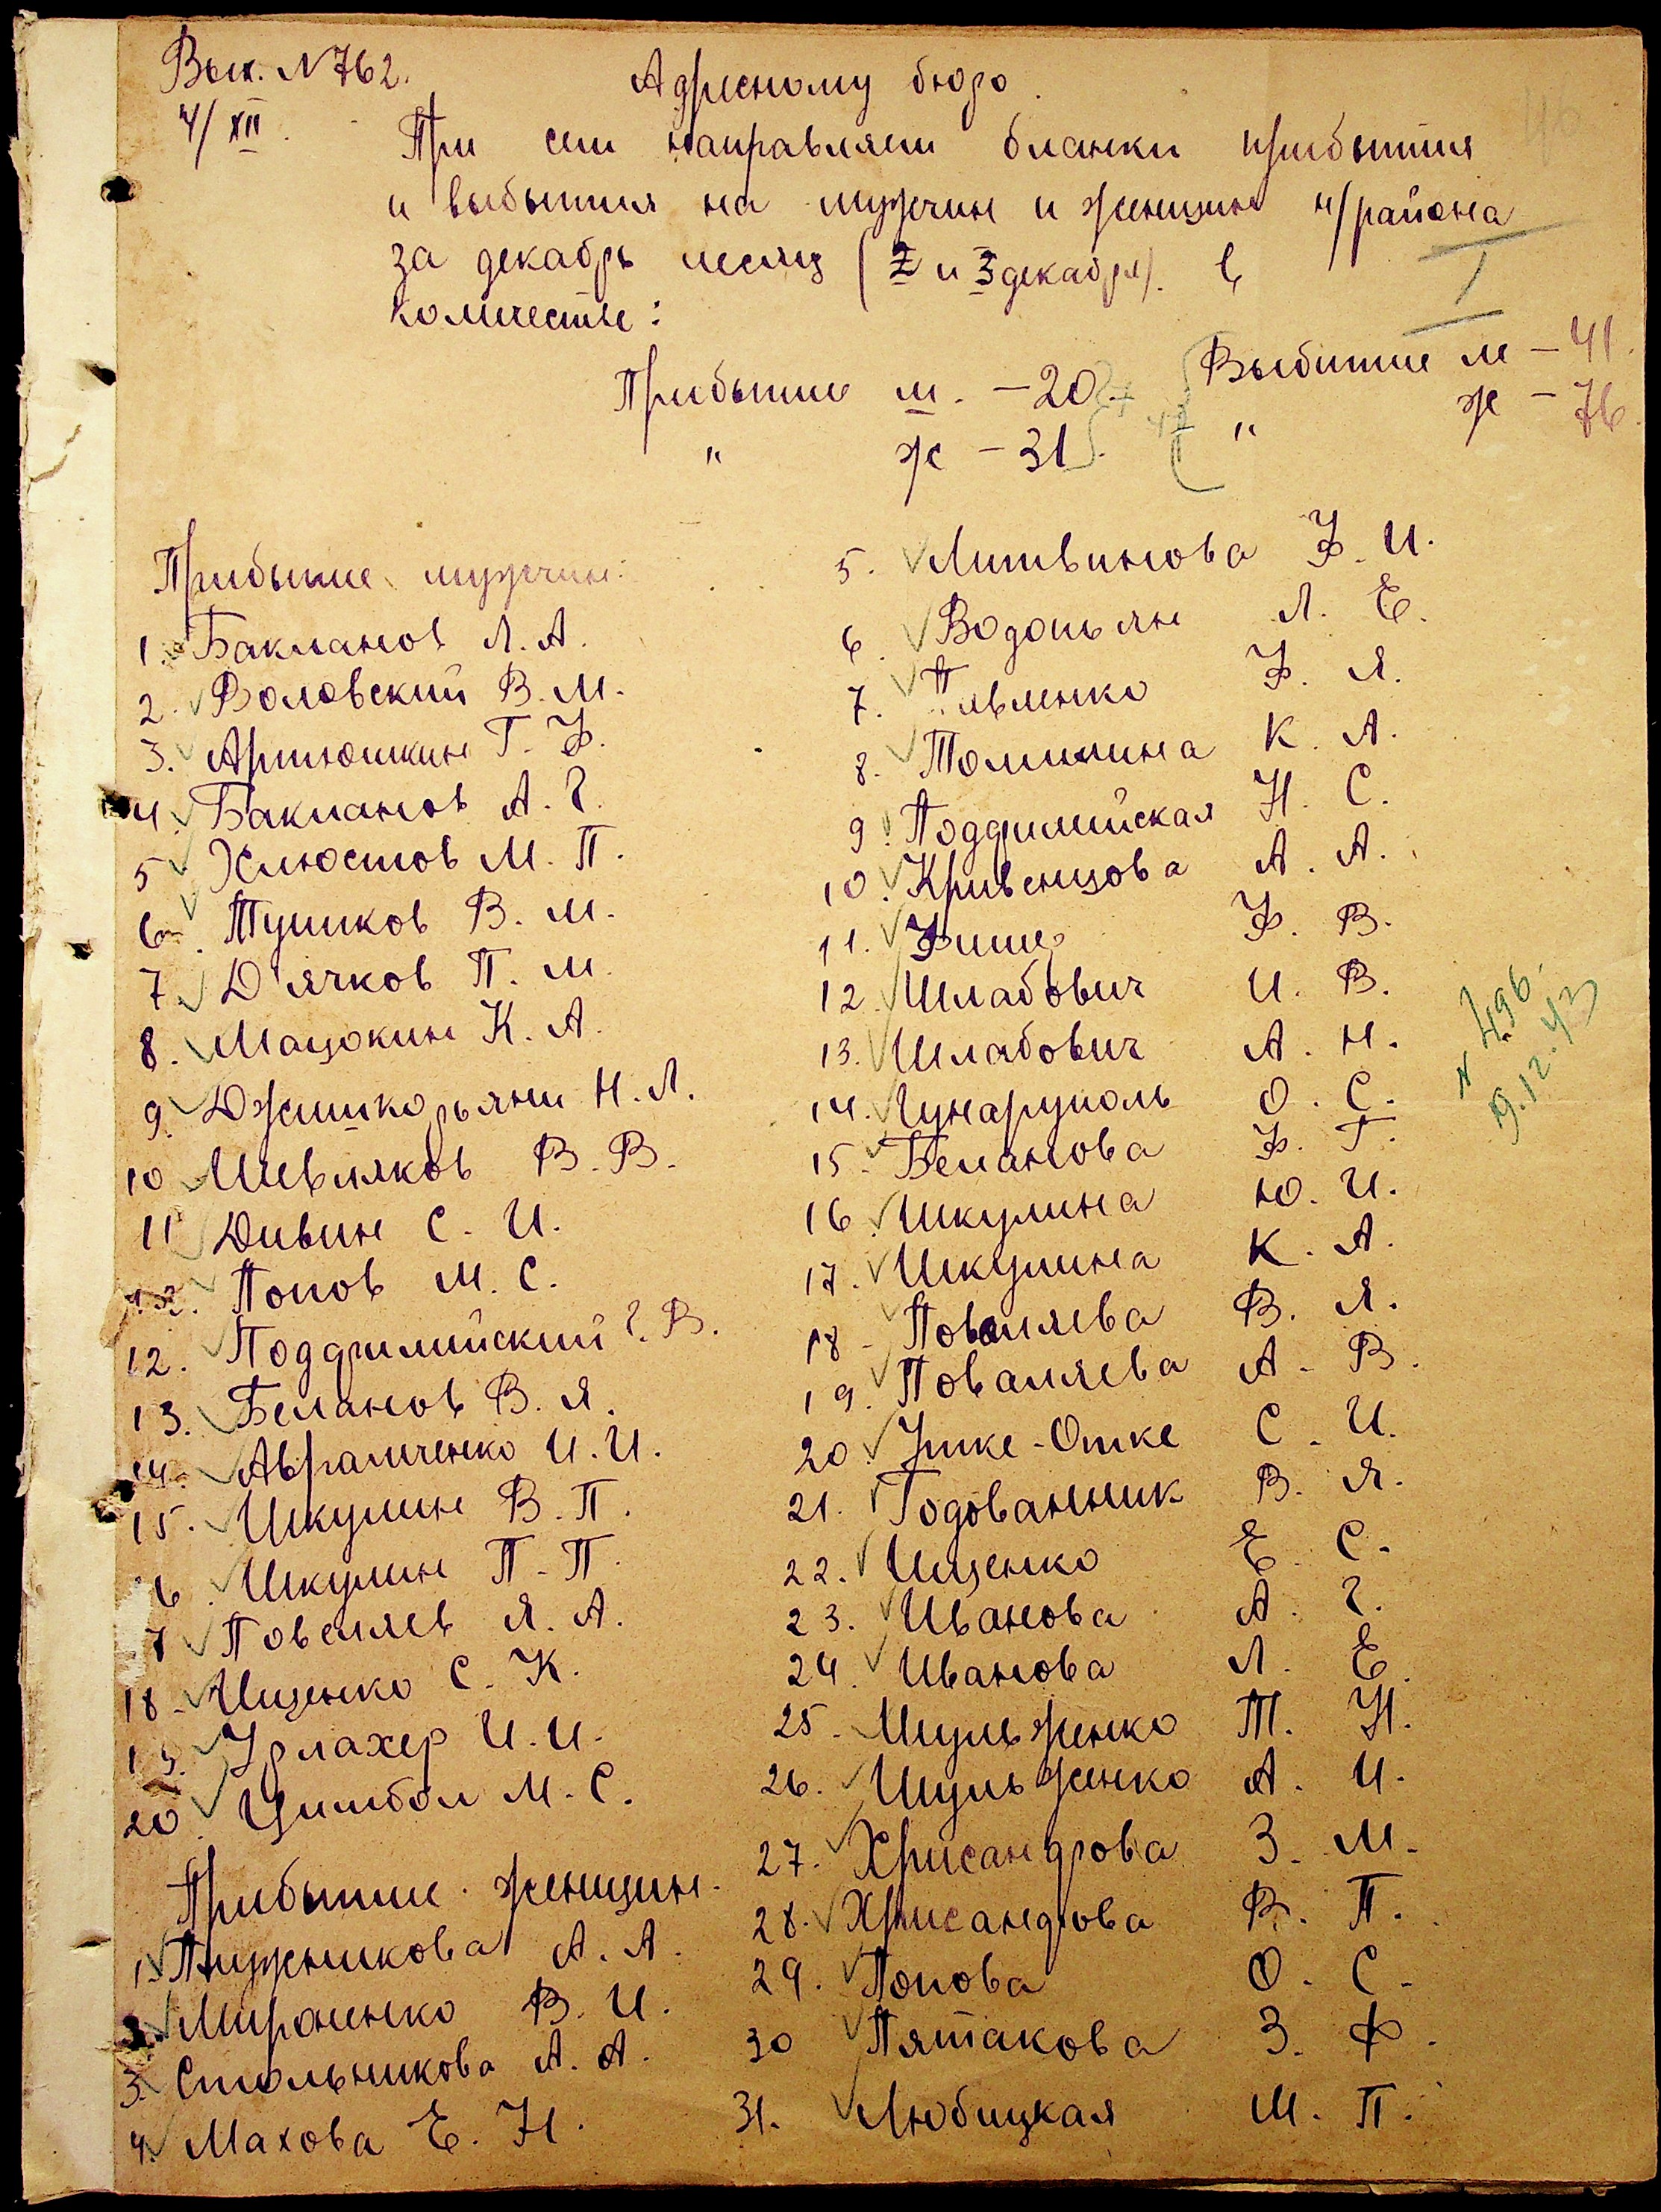 Вых. N 762.
4/XII.
Адресному бюро.
При сем направляем бланки прибытия
и выбытия на мужчин и женщин н/района
за декабрь месяц (2 и 3 декабря). в
количестве:
Прибытие м. – 20.
" ж – 31.
Выбитие м – 41.
" ж – 76.
I
Прибытие мужчин:
1. Бакланов Л. А.
2. Воловский В. М.
3. Артюшкин Г. Ф.
4. Бакланов А. Г.
5 Хлюстов М. П.
6. Тушков В. М.
7. Д'ячков П. М.
8. Мацокин К. А.
9. Н. Л.
10 Шевляков В. В.
11 Дивин С. И.
12. Попов М. С.
12. Поддримайский Г. В.
13. Беланов В. Я.
14. Авраменко И. И.
15. Шкулин В. П.
16. Шкулин П. П.
17 Поваляев Я. А.
18 - Ищенко С. К.
19. Удлахер И. И.
20. Цимбол М. С.
Прибытие женщин.
1. Пружникова А. А.
2. Мироненко В. И.
3. Стольникова А. А.
4. Махова Е. Н.
5. Литвинова Ф. И.
6. Водопьян Л. Е.
7. Павленко Ф. Я.
8. Томилина К. А.
9. Поддримайская Н. С.
10. Кривенцова А. А.
11. Фишер Ф. В.
12 Шлабович И. В.
13. Шлабович А. Н.
14. О. С.
15. Беланова Ф. Г.
16. Шкулина Ю. И.
17. Шкулина К. А.
18 - Поваляева В. Я.
19. Поваляева А. В.
20. Утке-Отке С. И.
21. Годованник В. Я.
22. Ищенко Е. С.
23. Иванова А. Г.
24. Иванова Л. Е.
25. Шульженко Т. Н.
26. Шульженко А. И.
27. Хрисандрова З. М.
28. Хрисандрова В. П.
29. Попова О. С.
30 Пятакова З. Ф.
31. Любицкая М. П.
N 496.
9.12.43